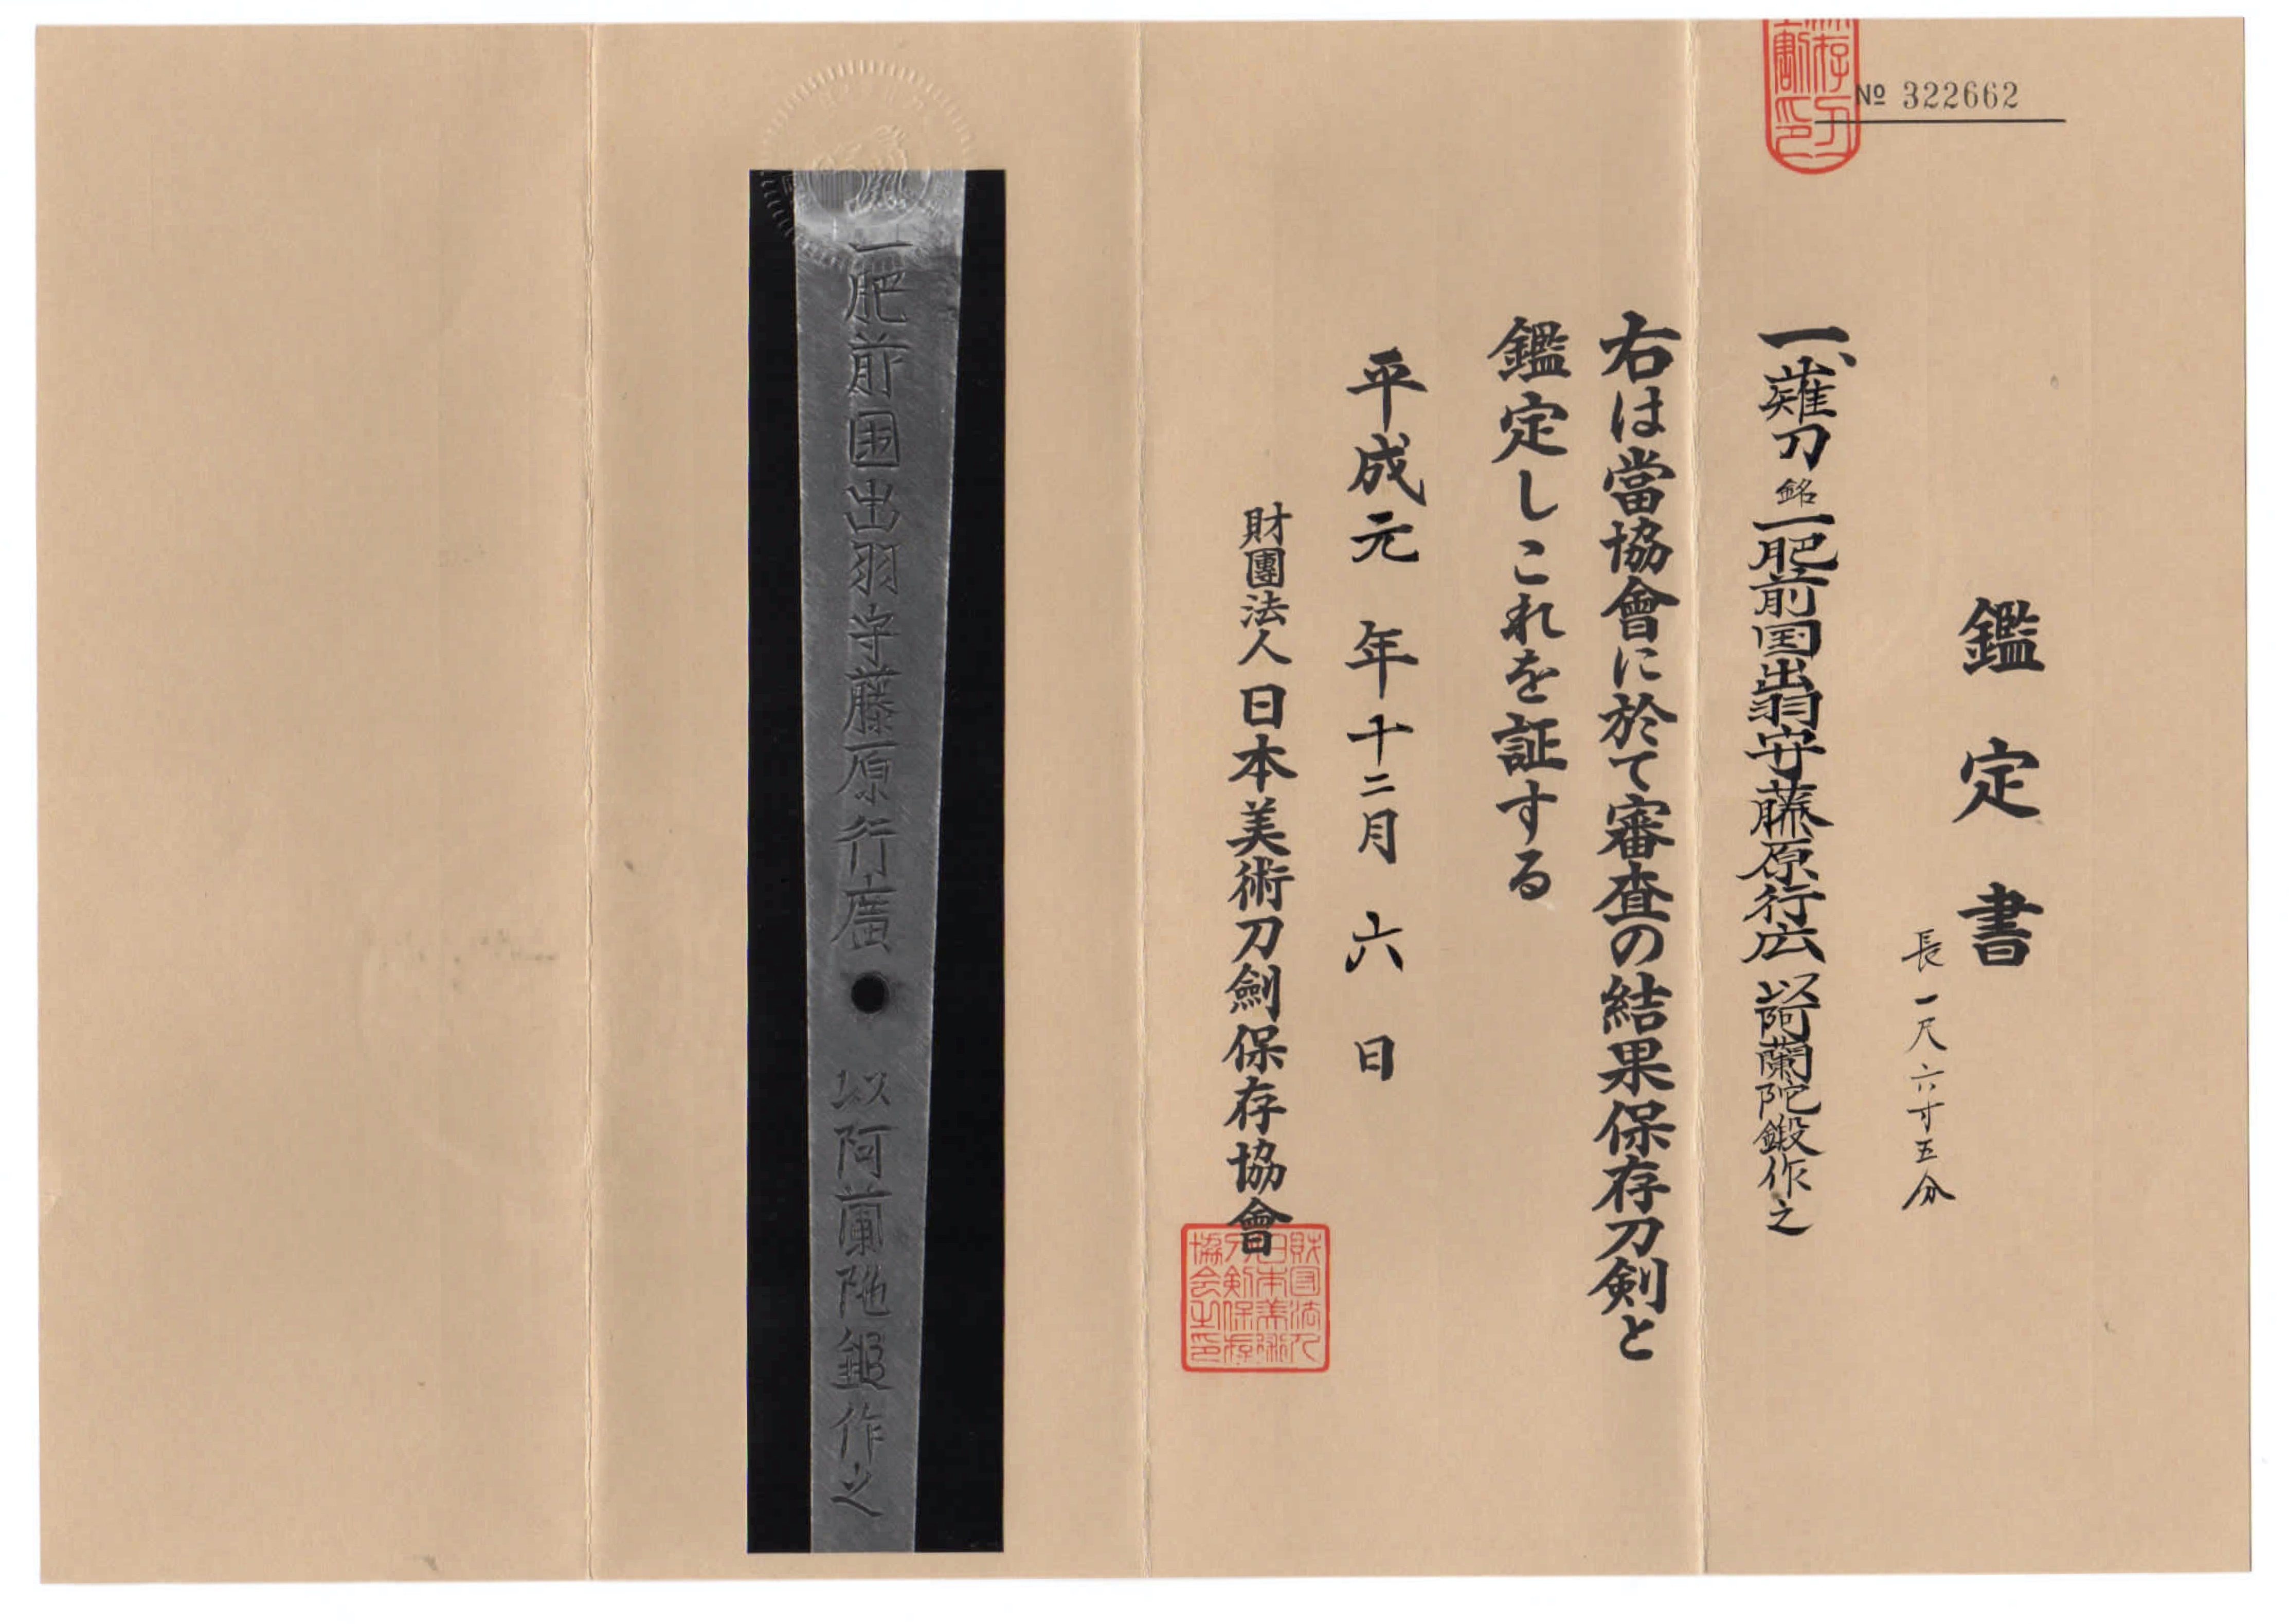 № 322662
鑑定書
長一尺六寸五分
一、薙刀 銘 一肥前国出羽守藤原行広 以阿蘭陀鍛作之
右は當協會に於て審査の結果保存刀剣と
鑑定しこれを証する
平成元年十二月六日
財團法人日本美術刀劍保存協會
財団法人
日本美術
刀剣保存
協会之印
一肥前国出羽守藤原行廣 以阿蘭陀鍛作之